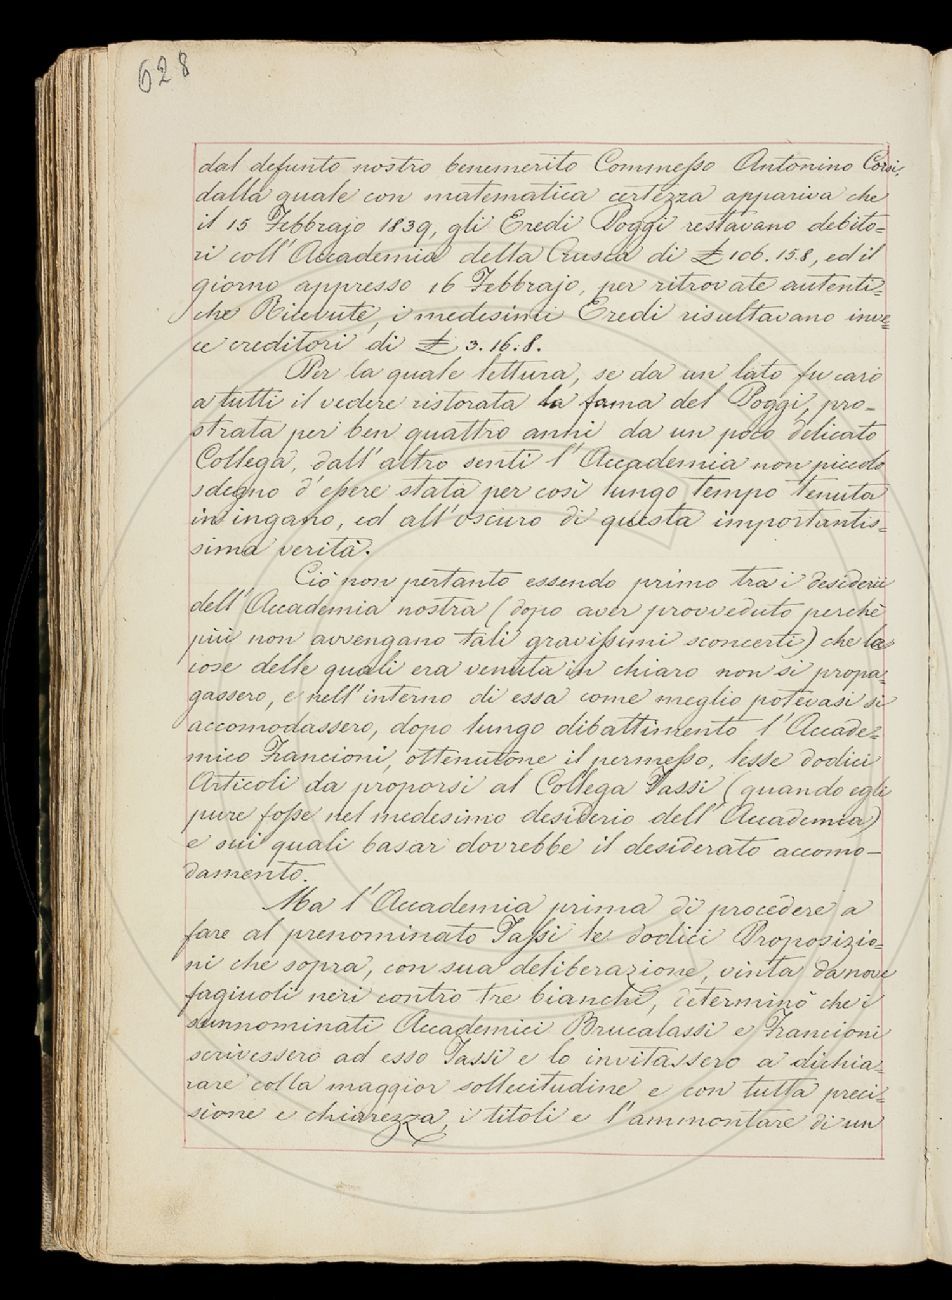 628
dal defunto nostro benemerito Commesso Antonino Corsi,
dalla quale con matematica certezza appariva che
il 15 Febbrajo 1839, gli Eredi Poggi restavano debito=
ri coll'Accademia della Crusca di £ 106.15.8, ed il
giorno appresso 16 Febbrajo, per ritrovate autenti=
che Ricevute, i medesimi Eredi risultavano inve=
ce creditori di £ 3.16.8.
Per la quale lettura, se da un lato fu caro
a tutti il vedere ristorata la fama del Poggi, pro-
strata per ben quattro anni da un poco delicato
Collega, dall'altro sentì l'Accademia non piccolo
sdegno d'essere stata per così lungo tempo tenuta
in inganno, ed all'oscuro di questa importantis=
sima verità.
Ciò non pertanto essendo primo tra i desiderii
dell'Accademia nostra (dopo aver provveduto perchè
più non avvengano tali gravissimi sconcerti) che le
cose delle quali era venuta in chiaro non si propa=
gassero, e nell'interno di essa come meglio potevasi si
accomodassero, dopo lungo dibattimento l'Accade=
mico Francioni, ottenutone il permesso, lesse dodici
Articoli da proporsi al Collega Tassi (quando egli
pure fosse nel medesimo desiderio dell'Accademia)
e sui quali basar dovrebbe il desiderato accomo-
damento.
Ma l'Accademia prima di procedere a
fare al prenominato Tassi le dodici Proposizio=
ni che sopra, con sua deliberazione, vinta da nove
fagiuoli neri contro tre bianchi, determinò che i
sunnominati Accademici Brucalassi e Francioni
scrivessero ad esso Tassi e lo invitassero a dichia=
rare colla maggior sollecitudine e con tutta preci=
sione e chiarezza, i titoli e l'ammontare di un